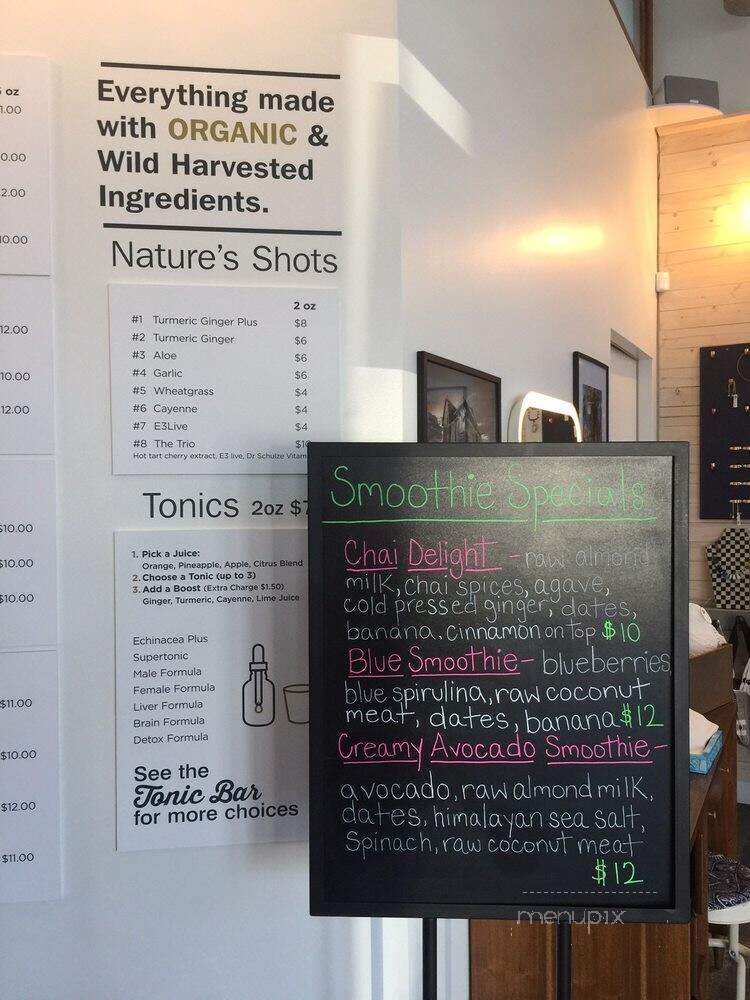 oz
1.00
0.00
2.00
10.00
12.00
10.00
12.00
$10.00
$10.00
$10.00
$11.00
$10.00
$12.00
$11.00
Everything made
with ORGANIC &
Wild Harvested
Ingredients.
Nature's Shots
2 oz
#1 Turmeric Ginger Plus $8
#2 Turmeric Ginger $6
#3 Aloe $6
#4 Garlic $6
#5 Wheatgrass $4
#6 Cayenne $4
#7 E3Live $4
#8 The Trio
Hot tart cherry extract, E3 live, Dr Schulze Vitam
Tonics 2oz $7
1. Pick a Juice:
Orange, Pineapple, Apple, Citrus Blend
2. Choose a Tonic (up to 3)
3. Add a Boost (Extra Charge $1.50)
Ginger, Turmeric, Cayenne, Lime Juice
Echinacea Plus
Supertonic
Male Formula
Female Formula
Liver Formula
Brain Formula
Detox Formula
See the
Tonic Bar
for more choices
Smoothie Specials
Chai Delight - raw almond
milk, chai spices, agave,
cold pressed ginger, dates,
banana, cinnamon on top $10
Blue Smoothie - blueberries
blue spirulina, raw coconut
meat, dates, banana $12
Creamy Avocado Smoothie -
avocado, raw almond milk,
dates, himalayan sea salt,
Spinach, raw coconut meat
$12
menupix